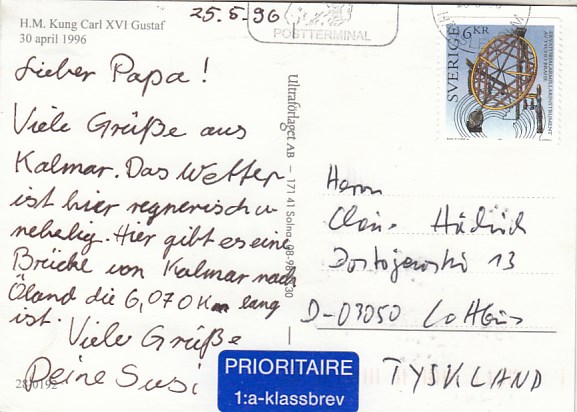 H.M. Kung Carl XVI Gustaf
30 april 1996
25.5.96
POSTTERMINAL
SVERIGE 6 KR
Lieber Papa!
Viele Grüße aus
Kalmar. Das Wetter
ist hier regnerisch u
nebelig. Hier gibt es eine
Brücke von Kalmar nach
Öland die 6,070 Km lang
ist. Viele Grüße
Deine Susi
280192
Ultraförlaget AB – 171 41 Solna, 08-98 30
Herrn
Dostojewski 13
D-03050 Cottbus
TYSKLAND
PRIORITAIRE
1:a-klassbrev